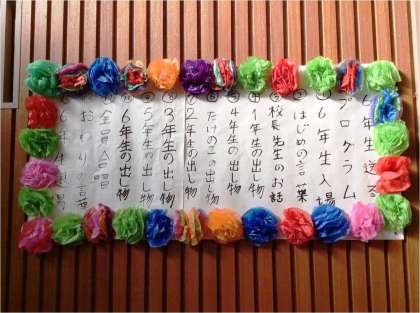 年生送る
プログラム
①6年生入場
②はじめの言葉
③校長先生のお話
④1年生の出し物
⑤4年生の出し物
⑥たけのこの出し物
⑦2年生の出し物
3年生の出し物
5年生の出し物
6年生の出し物
全員合唱
おわりの言葉
6年生退場